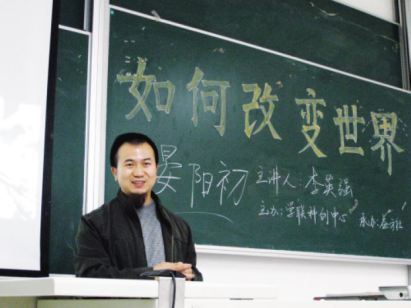 如何改变世界
晏阳初 主讲人:李英强
主办:学联科创中心 承办: